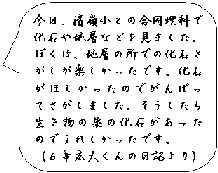 今日、箱嶺小との合同理科で
化石や地層などを見ました。
ぼくは、地層の所での化石さ
がしが楽しかったです。化石
がほしかったのでがんばっ
てさがしました。そうしたら
生き物の巣の化石があった
のでうれしかったです。
(6年広大くんの日記より)